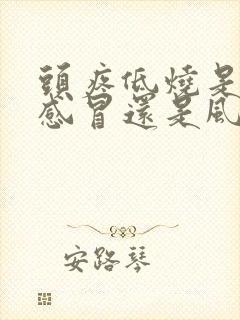 頭疼低燒是
感冒還是風
安路琴